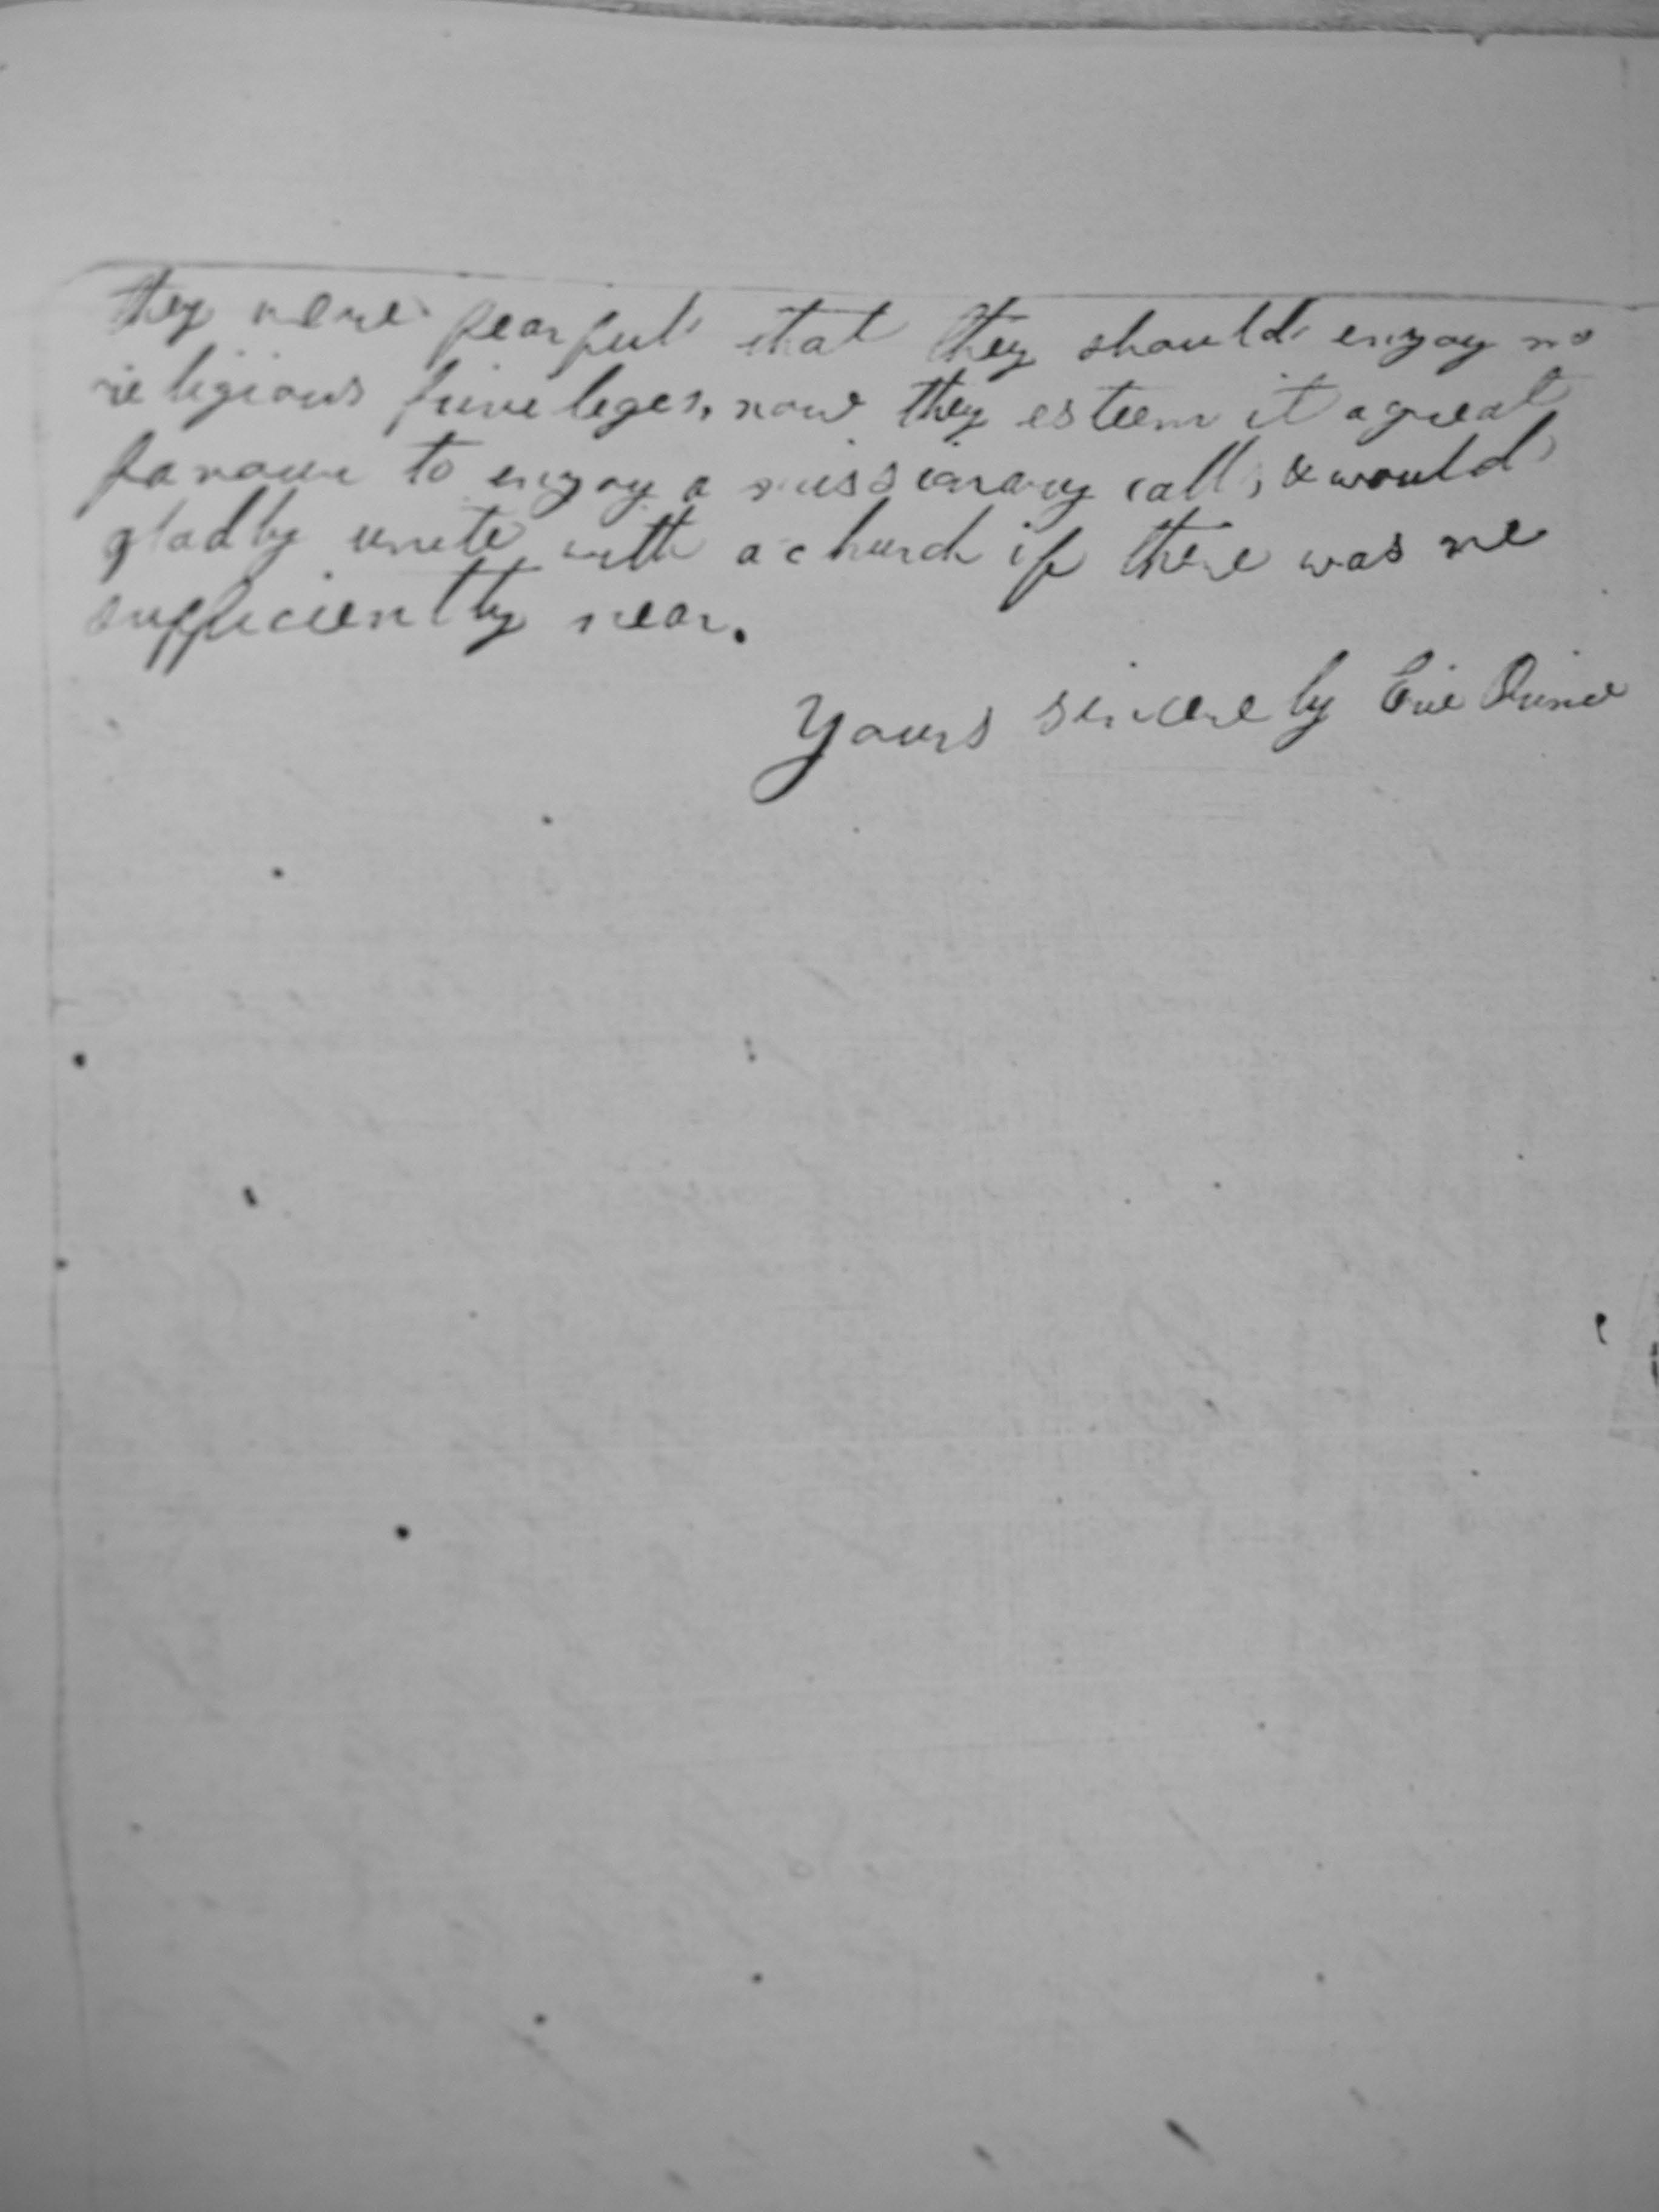 they were fearful that they should enjoy no
religious priveleges, now they esteem it a great
favour to enjoy a missionary call, & would
gladly unite with a church if there was one
sufficiently near.
Yours sincerely Erie Prince